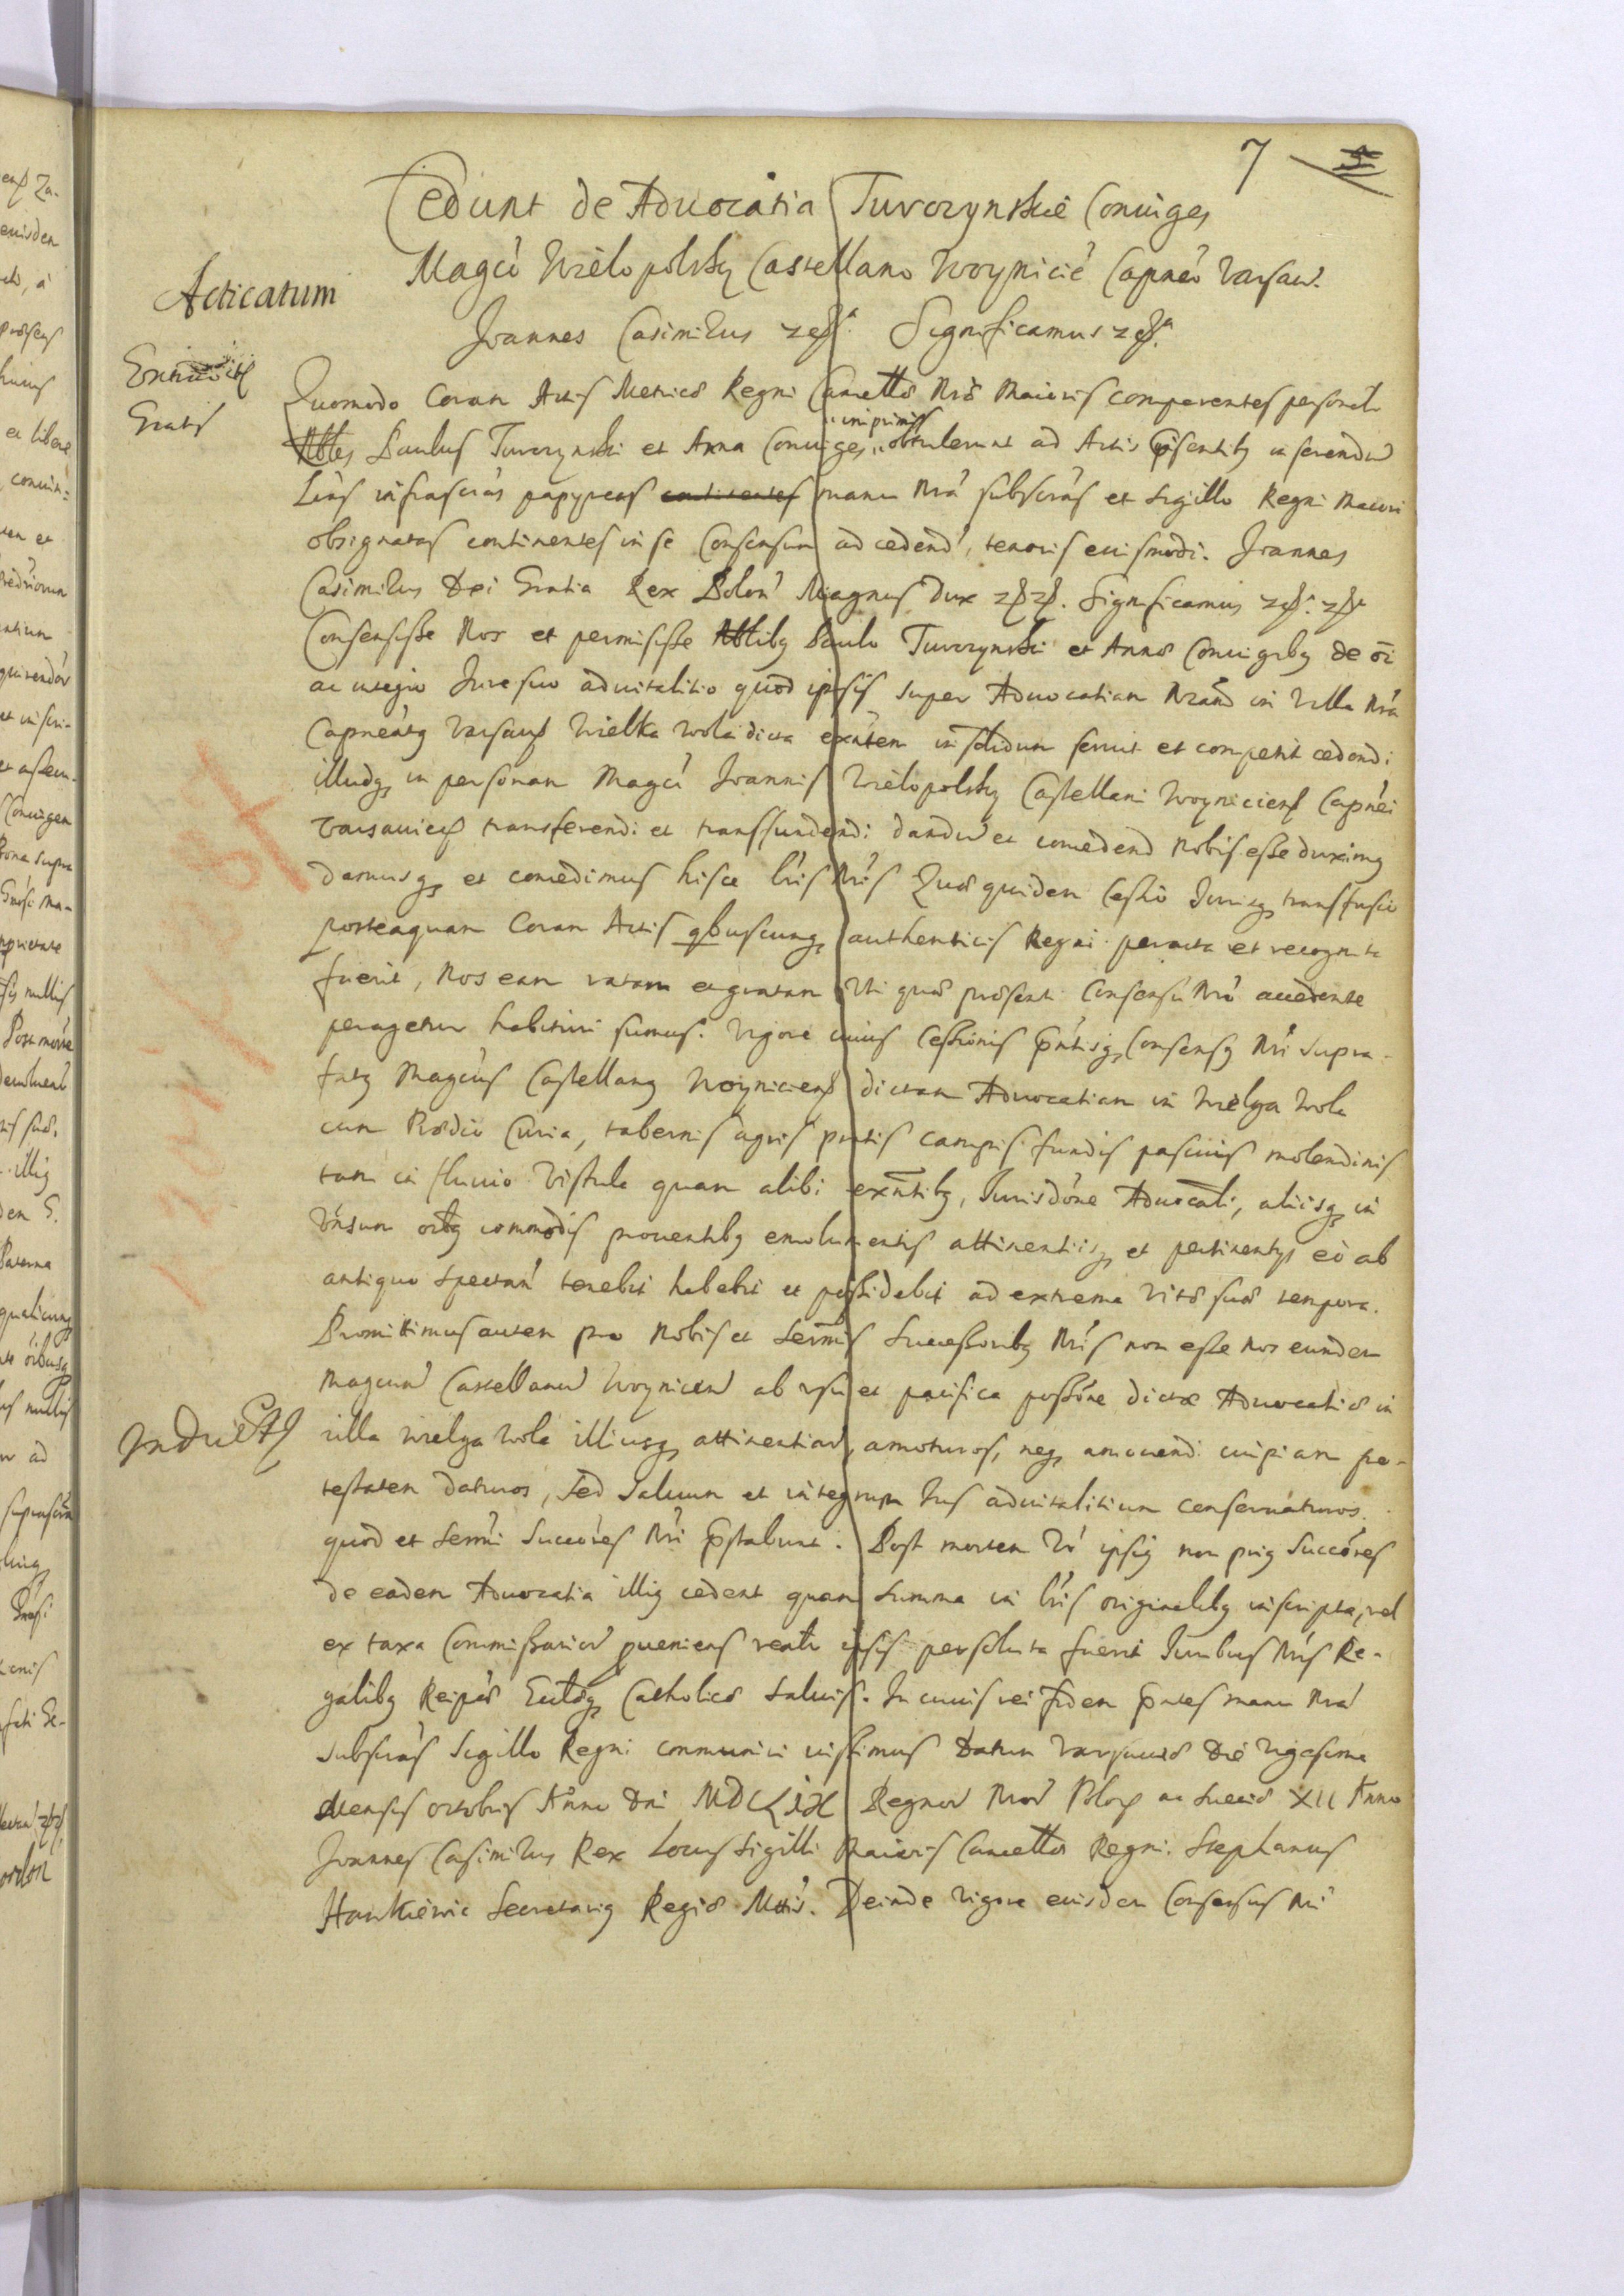 7
Cedunt de Advocatia Turczynskie Coniuges
Magco Wielopolsky Castellano Woynicie Capneo Varsau.
Acticatum
Joannes Casimirus Significamus
Gratis
Quomodo Coram Actis Metrices Regni Cancellae Nrae Maioris comparentes personalr
Nbles Paulus Turczynski et Anna Coniuges, obtulerunt ad Actis pnsentibq inserendu
imprimis
Lras infrascras papyreas continentes manu Nra subscras et sigillo Regni Maiori
obsignatas continentes in se Consensum ad cedend, tenoris eiusmodi. Joannes
Casimirus Dei Gratia Rex Polon Magnus Dux Significamus
Consensisse Nos et permisisse Nblibq Paulo Turczynski et Annae Coniugibq de oi
ac integro Jure suo advitalitio quod ipsis super Advocatiam Nram in Villa Nra
Capneatq Varsaus Wielka Wola dicta exntem in solidum servit et competit cedendi
illudq in personam Magci Joannis Wielopolsky Castellani Woyniciens Capnei
Varsauiens transferendi et transfundendi dandu et concedend Nobis esse duximq
damusq et concedimus hisce lris Nris Quae quidem Cessio Jurisq transfusio
posteaquam Coram Actis qbuscunq authenticis Regni peracta et recognita
fuerit, Nos eam ratam et gratam Uti quae praesenti Consensu Nro accedente
peragetur habituri sumus. Vigore cuius Cessionis pntisq Consensq Nri supra-
fatq Magcus Castellanq Woyniciens dictam Advocatiam in Wielga Wola
cum Praedio Curia, tabernis agris pratis campis fundis pascuis molendinis
tam in fluvio Vistula quam alibi exntibq, Jurisdone Advocali, aliisq in
Unsum oibq commodis proventibq emolumentis attinentiisq et pertinentys eo ab
antiquo spectan tenebit habebit et possidebit ad extrema vitae suae tempora.
Promittimus autem pro Nobis et Sermis Successoribq Nris non esse Nos eundem
Magcum Castellanu Woynicen ab usu et pacifica possone dictae Advocatiae in
Indictis
villa Wielga Wola illiusq attinentiar, amoturos, neq amovendi cuipiam po-
testatem daturos, sed salvum et integrum Jus advitalitium conservaturos.
quod et Sermi Succores Nri pstabunt. Post mortem Vo ipsiq non priq Succores
de eadem Advocatia illiq cedent quam summa in lris originalibq inscripta, vel
ex taxa Commissarior pveniens realr ipsis persoluta fuerit Juribus Nris Re-
galibq Reipcae Ecclaeq Catholicae salvis. In cuius rei fidem pntes manu Nra
subscras Sigillo Regni communiri iussimus Datum Varsaviae Die vigesima
Mensis octobris Anno Dni MDCLIX Regnor Nror Polon ac Sueciae XII Anno
Joannes Casimirus Rex Locus Sigilli Maioris Cancellae Regni. Stephanus
Hankiewic Secretariq Regiae Mttis. Deinde vigore eiusdem Consensus Nri